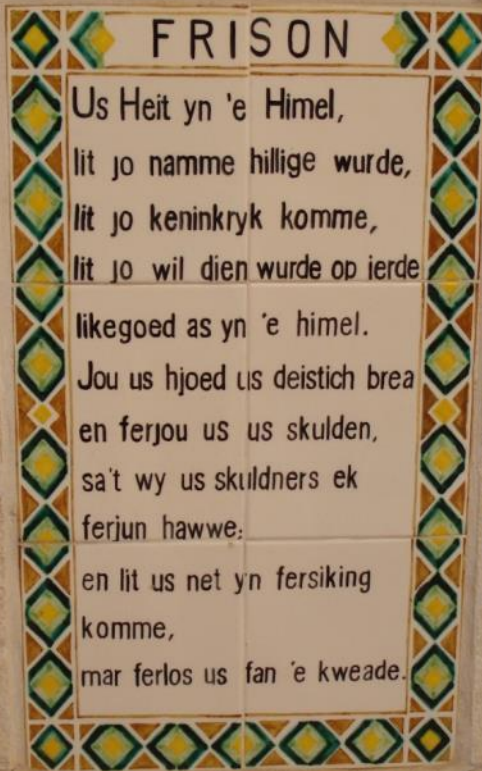 FRISON
Us Heit yn 'e Himel,
lit jo namme hillige wurde,
lit jo keninkryk komme,
lit jo wil dien wurde op ierde
likegoed as yn 'e himel.
Jou us hjoed us deistich brea
en ferjou us us skulden,
sa't wy us skuldners ek
ferjun hawwe;
en lit us net yn fersiking
komme,
mar ferlos us fan 'e kweade.